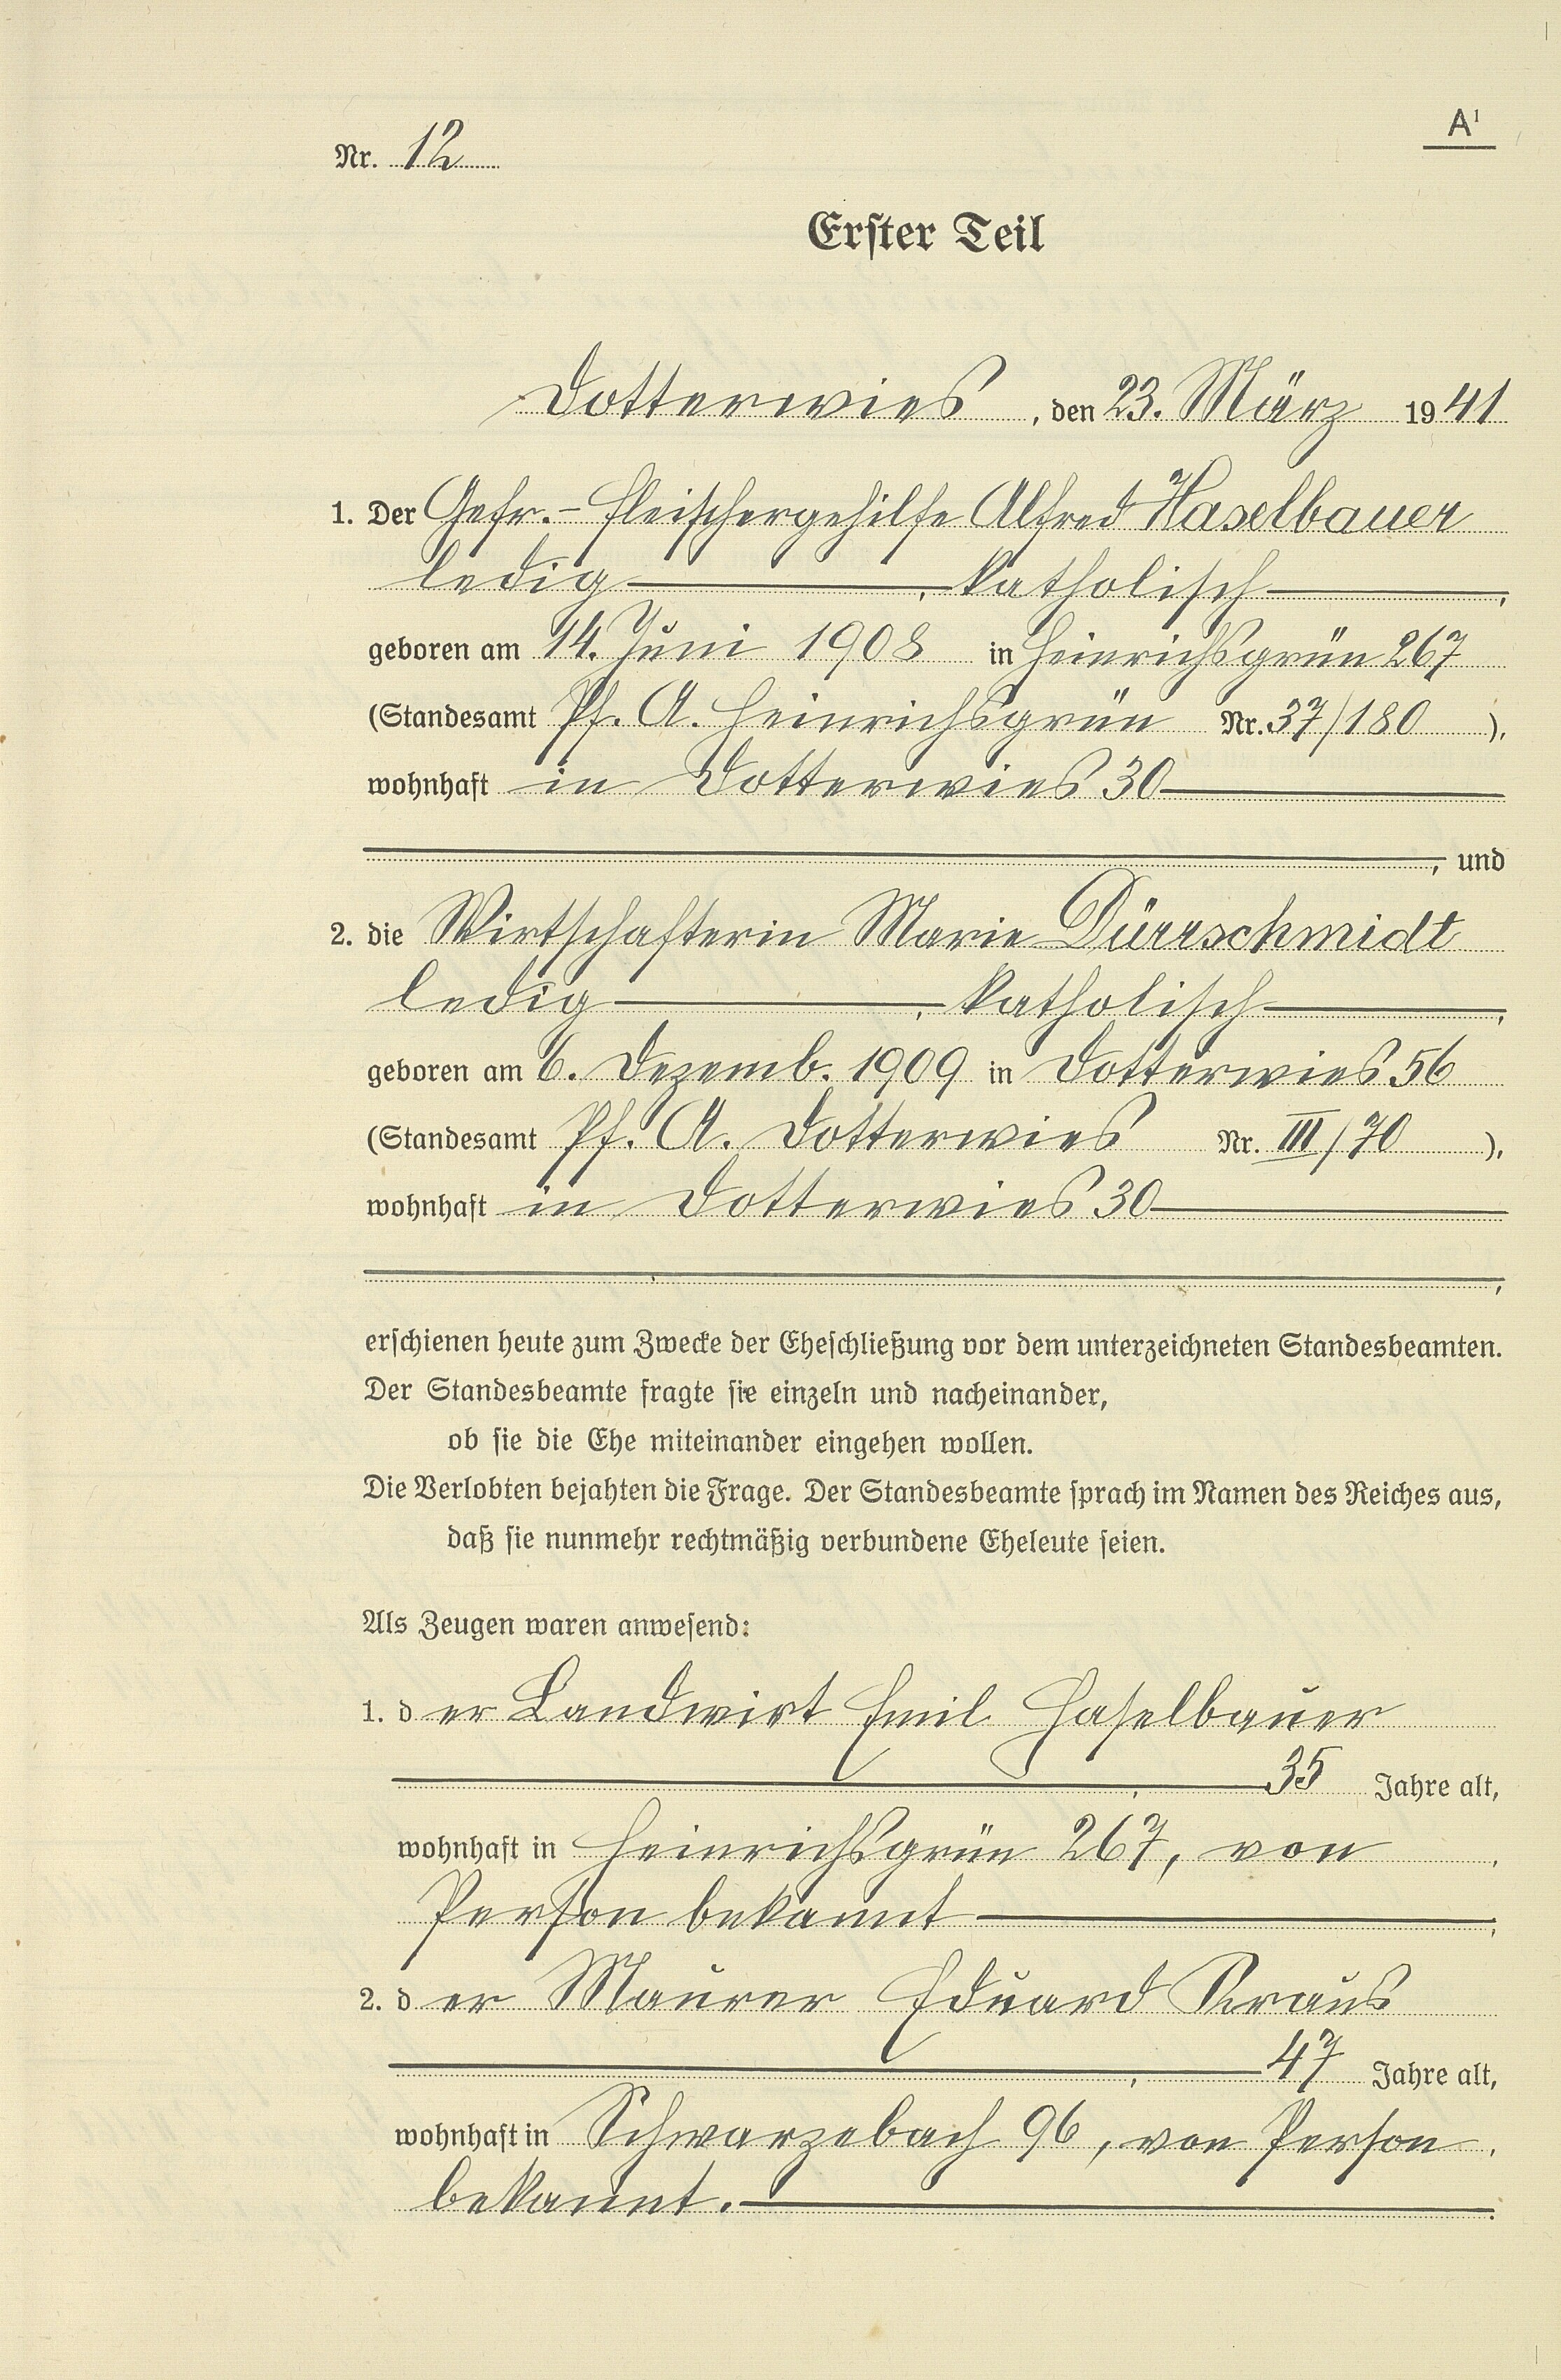 A¹
Nr. 12
Erster Teil
Dotterwies, den 23. März 1941
1. Der Gefr.-Fleischergehilfe Alfred Haselbauer
ledig, katholisch,
geboren am 14. Juni 1908 in Heinrichsgrün 267
(Standesamt Pf. A. Heinrichsgrün Nr. 37/180),
wohnhaft in Dotterwies 30
, und
2. die Wirtschafterin Marie Dürrschmidt
ledig, katholisch,
geboren am 6. Dezemb. 1909 in Dotterwies 56
(Standesamt Pf. A. Dotterwies Nr. III/70),
wohnhaft in Dotterwies 30
,
erschienen heute zum Zwecke der Eheschließung vor dem unterzeichneten Standesbeamten.
Der Standesbeamte fragte sie einzeln und nacheinander,
ob sie die Ehe miteinander eingehen wollen.
Die Verlobten bejahten die Frage. Der Standesbeamte sprach im Namen des Reiches aus,
daß sie nunmehr rechtmäßig verbundene Eheleute seien.
Als Zeugen waren anwesend:
1. der Landwirt Emil Haselbauer
, 35 Jahre alt,
wohnhaft in Heinrichsgrün 267, von
Person bekannt,
2. der Maurer Eduard Kraus
, 47 Jahre alt,
wohnhaft in Schwarzebach 96, von Person
bekannt.